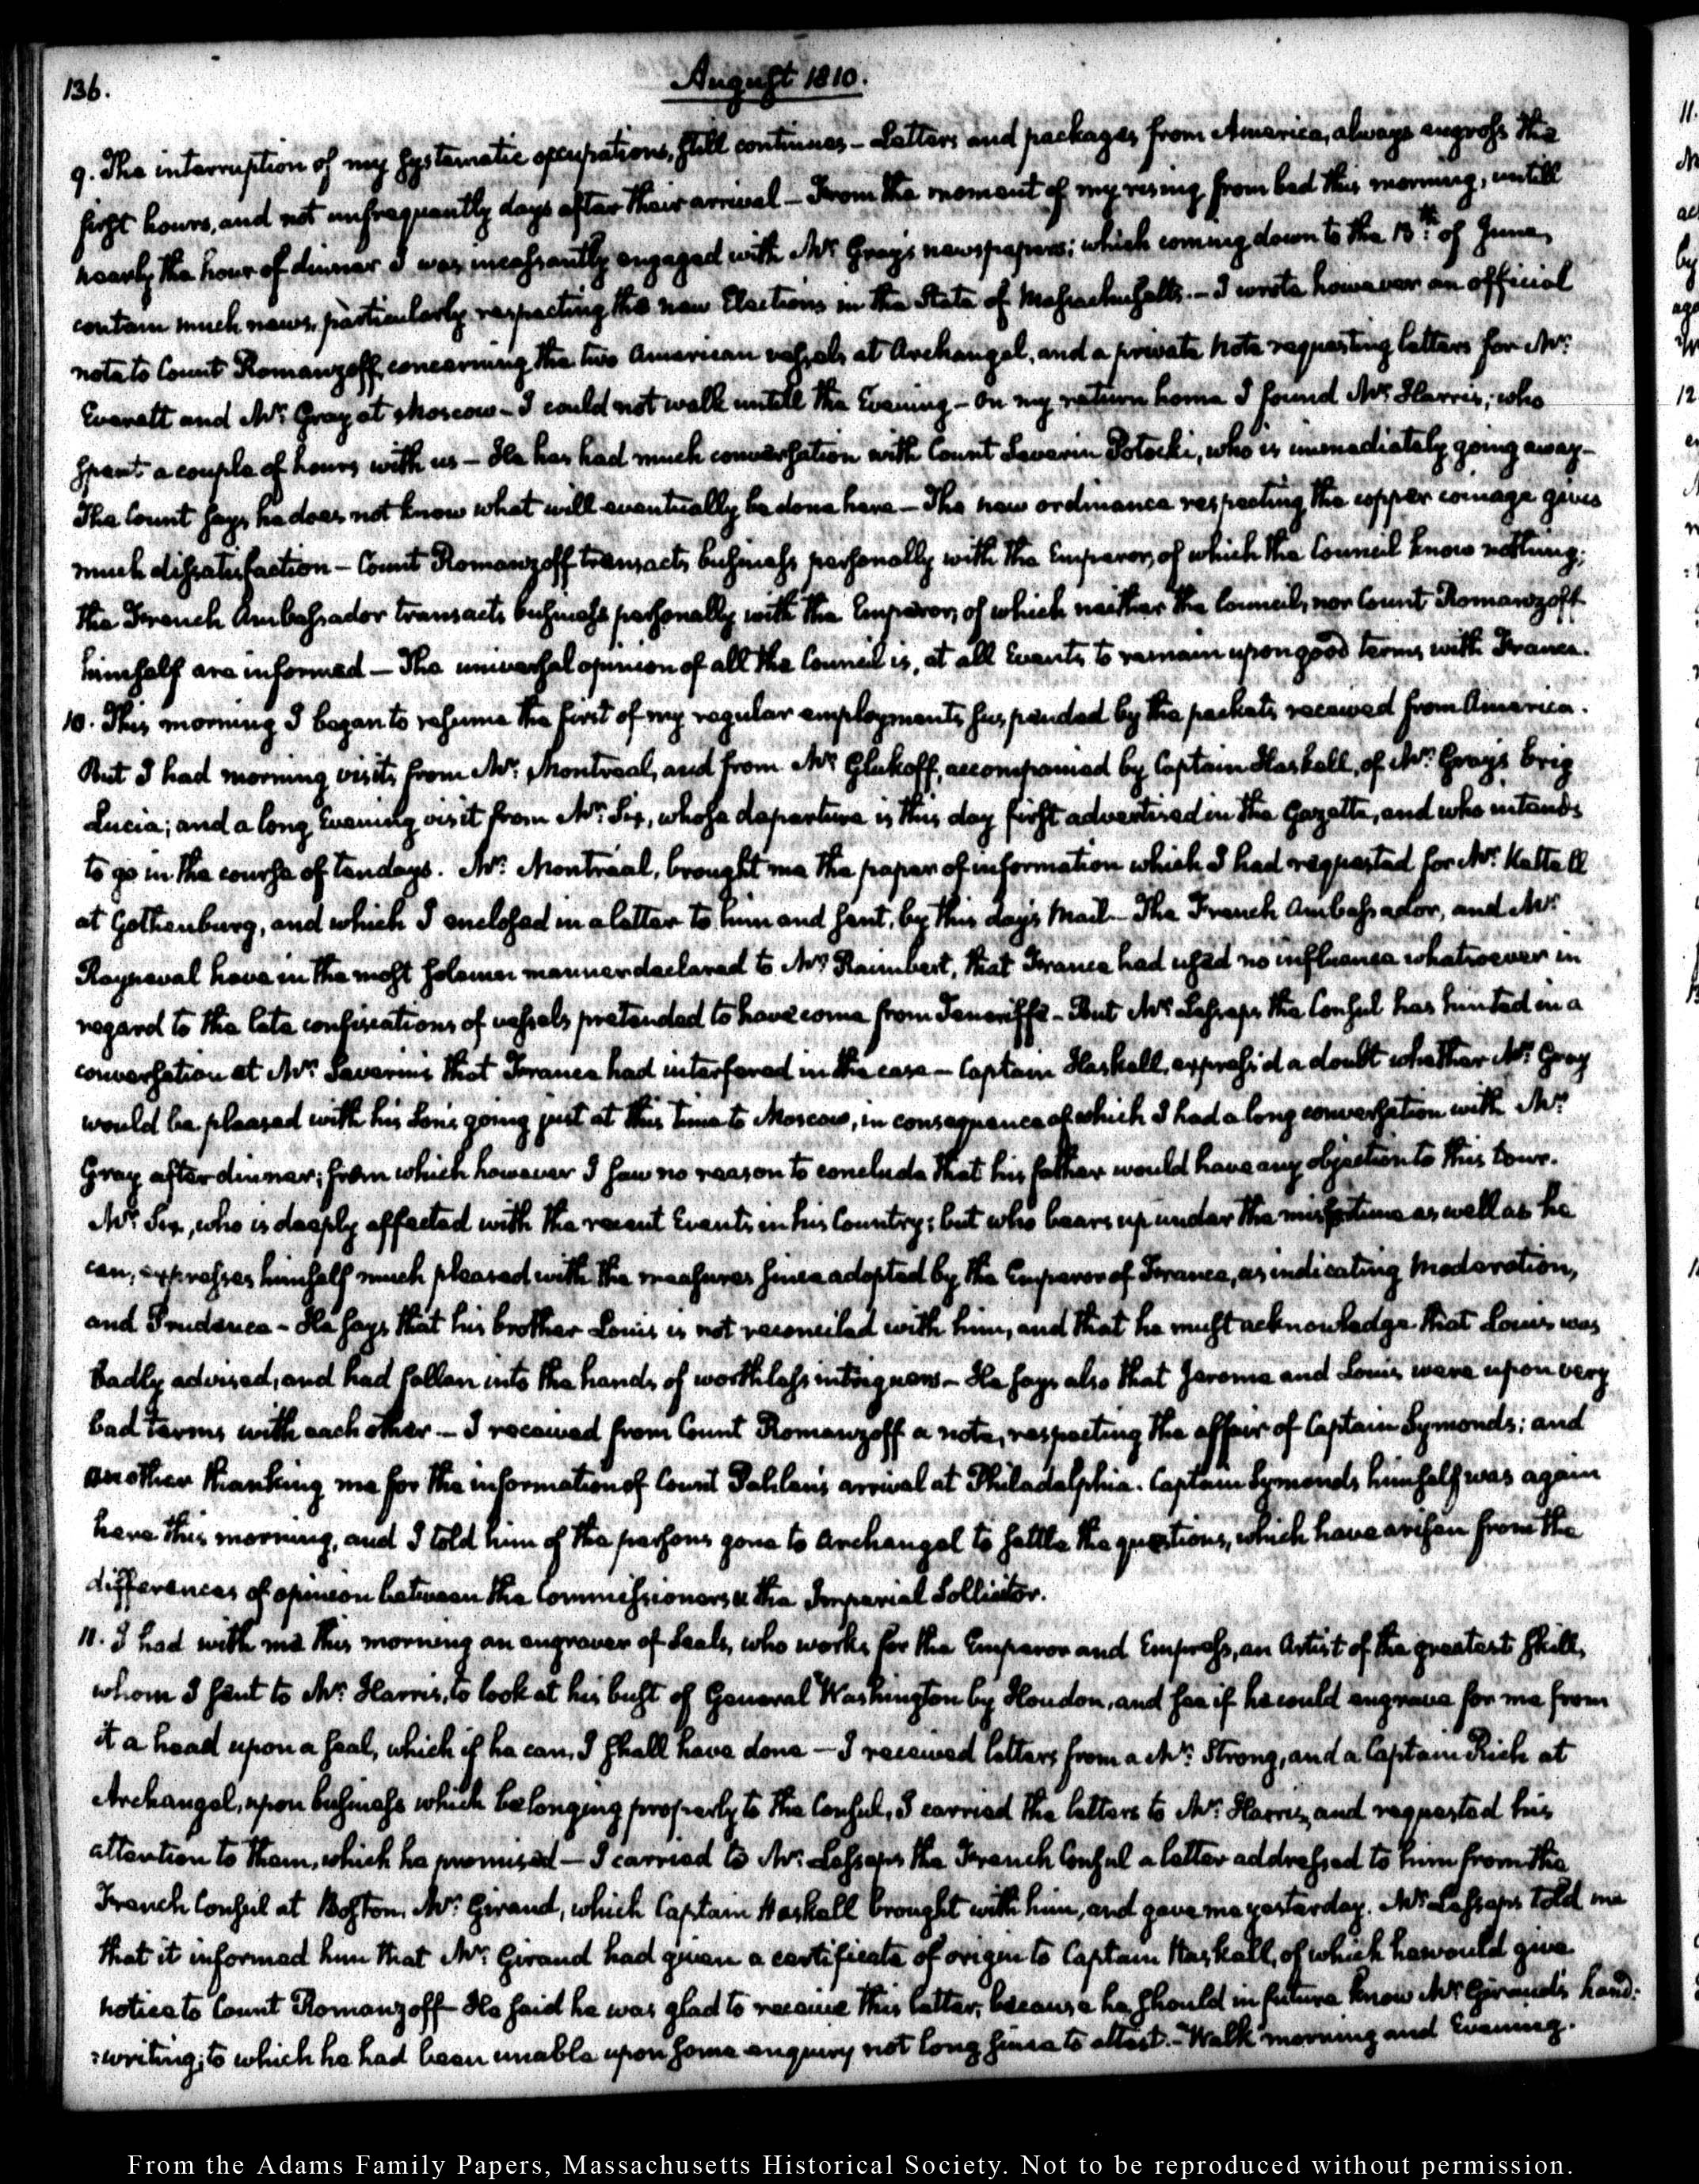 136.
August 1810.
9. The interruption of my systematic occupations, still continues – Letters and packages from America, always engross the
first hours, and not unfrequently days after their arrival – From the moment of my rising from bed this morning, untill
nearly the hour of dinner I was incessantly engaged with Mr. Gray's newspapers; which coming down to the 13th. of June,
contain much news, particularly respecting the new Elections in the State of Massachusetts. – I wrote however an official
note to Count Romanzoff, concerning the two American vessels at Archangel, and a private note requesting letters for Mr.
Everett and Mr. Gray at Moscow – I could not walk untill the Evening – On my return home I found Mr. Harris, who
spent a couple of hours with us – He has had much conversation with Count Severin Potocki, who is immediately going away –
The Count says he does not know what will eventually be done here – The new ordinance respecting the copper coinage gives
much dissatisfaction – Count Romanzoff transacts business personally with the Emperor, of which the Council know nothing;
the French Ambassador transacts business personally with the Emperor, of which neither the Council, nor Count Romanzoff
himself are informed – The universal opinion of all the Council is, at all Events to remain upon good terms with France.
10. This morning I began to resume the first of my regular employments suspended by the packets received from America.
But I had morning visits from Mr. Montreal, and from Mr. Glukoff, accompanied by Captain Haskell, of Mr. Gray's brig
Lucia; and a long Evening visit from Mr. Six, whose departure is this day first advertised in the Gazette, and who intends
to go in the course of ten days. Mr. Montréal, brought me the paper of information which I had requested for Mr. Kettell
at Gothenburg, and which I enclosed in a letter to him and sent, by this day's Mail – The French Ambassador, and Mr.
Rayneval have in the most solemn manner declared to Mr. Raimbert, that France had used no influence whatsoever in
regard to the late confiscations of vessels pretended to have come from Teneriffe – But Mr. Lesseps the Consul has hinted in a
conversation at Mr. Severin's that France had interfered in the case – Captain Haskell, express'd a doubt whether Mr. Gray
would be pleased with his Son's going just at this time to Moscow, in consequence of which I had a long conversation with Mr.
Gray after dinner; from which however I saw no reason to conclude that his father would have any objection to this tour.
Mr. Six, who is deeply affected with the recent Events in his Country; but who bears up under the misfortune as well as he
can, expresses himself much pleased with the measures since adopted by the Emperor of France, as indicating Moderation,
and Prudence – He says that his brother Louis is not reconciled with him, and that he must acknowledge that Louis was
badly advised, and had fallen into the hands of worthless intriguers – He says also that Jerome and Louis were upon very
bad terms with each other – I received from Count Romanzoff a note, respecting the affair of Captain Symonds; and
another thanking me for the information of Count Pahlen's arrival at Philadelphia. Captain Symonds himself was again
here this morning, and I told him of the persons gone to Archangel to settle the questions, which have arisen from the
differences of opinion between the Commissioners & the Imperial Sollicitor.
11. I had with me this morning an engraver of Seals, who works for the Emperor and Empress, an Artist of the greatest skill,
whom I sent to Mr. Harris, to look at his bust of General Washington by Houdon, and see if he could engrave for me from
it a head upon a seal, which if he can, I shall have done – I received letters from a Mr. Strong, and a Captain Rich at
Archangel, upon business which belonging properly to the Consul, I carried the letters to Mr. Harris, and requested his
attention to them, which he promised – I carried to Mr. Lesseps the French Consul a letter addressed to him from the
French Consul at Boston, Mr. Giraud, which Captain Haskell brought with him, and gave me yesterday. Mr. Lesseps told me
that it informed him that Mr. Giraud had given a certificate of origin to Captain Haskell, of which he would give
notice to Count Romanzoff – He said he was glad to receive this letter, because he should in future know Mr. Giraud's hand:
:writing; to which he had been unable upon some enquiry not long since to attest. – Walk morning and Evening.
From the Adams Family Papers, Massachusetts Historical Society. Not to be reproduced without permission.